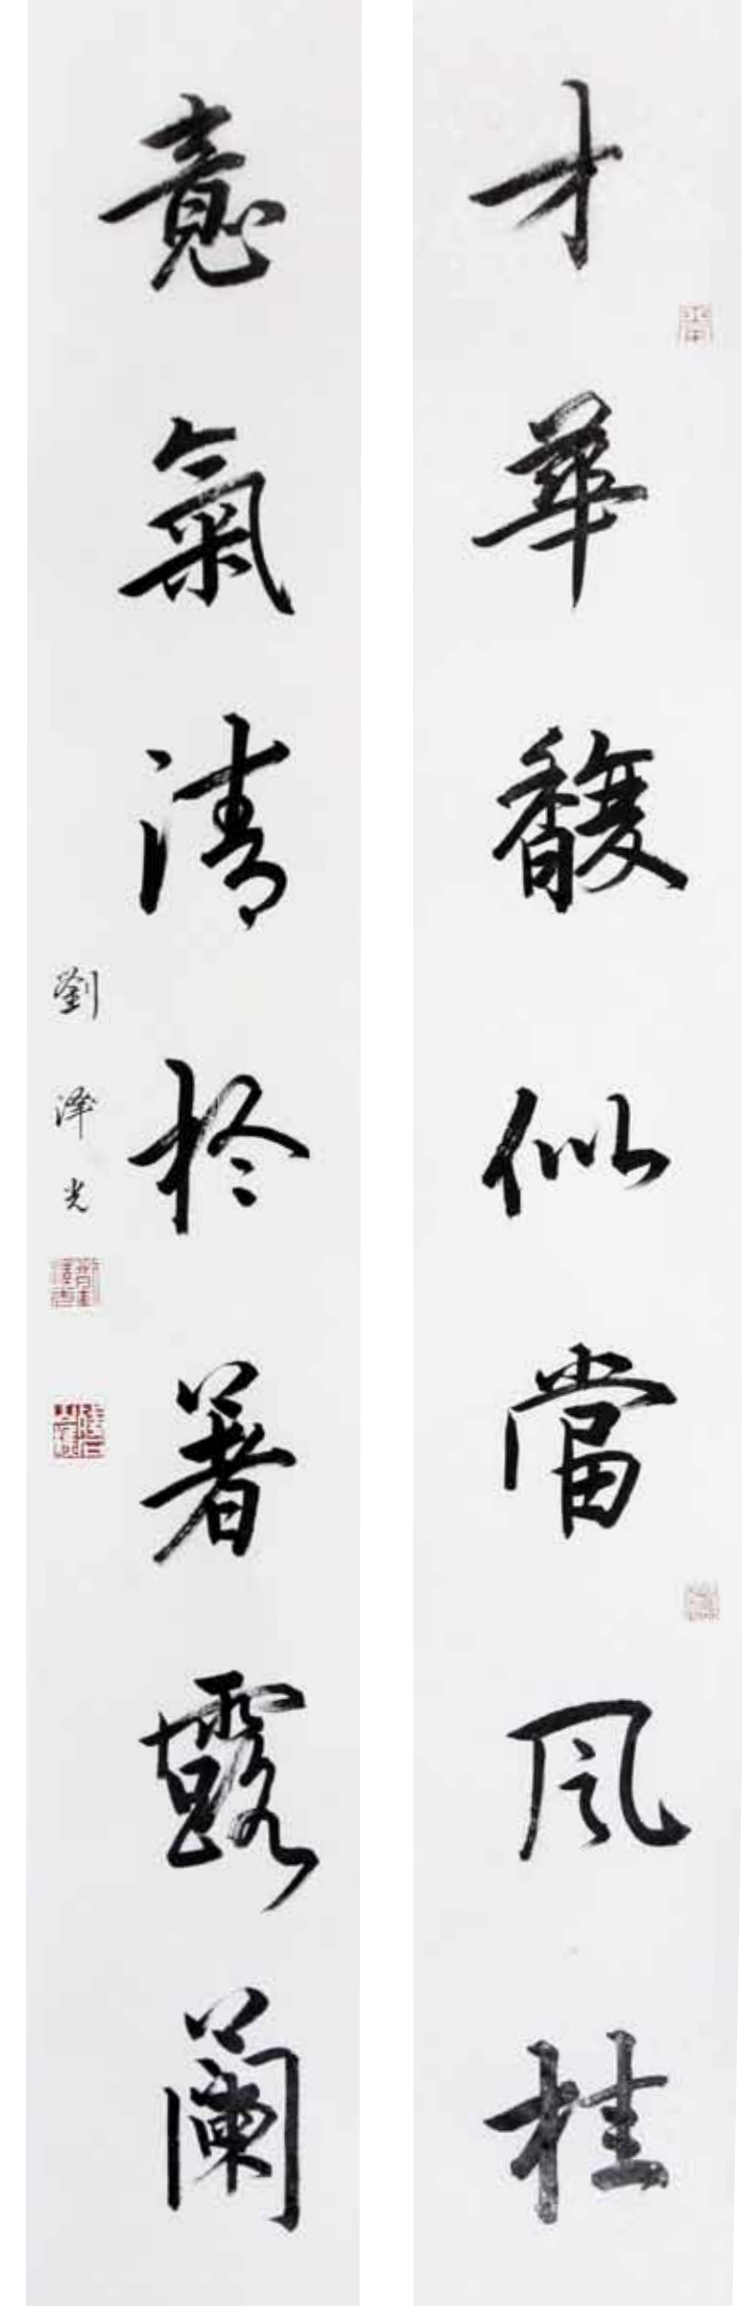 才華馥似當風桂
意氣清於著露蘭
劉澤光